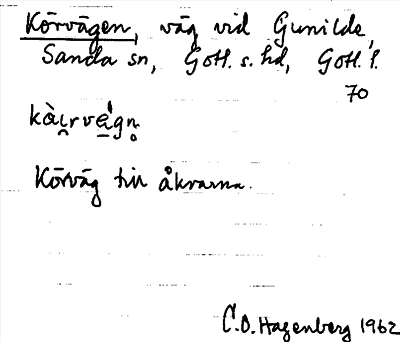 Körvägen, väg vid Gunilde,
Sanda sn, Gotl. s. hd, Gotl. l.
70
kài̯rvä̀gn̥
Körväg till åkrarna.
C.O. Hagenberg 1962